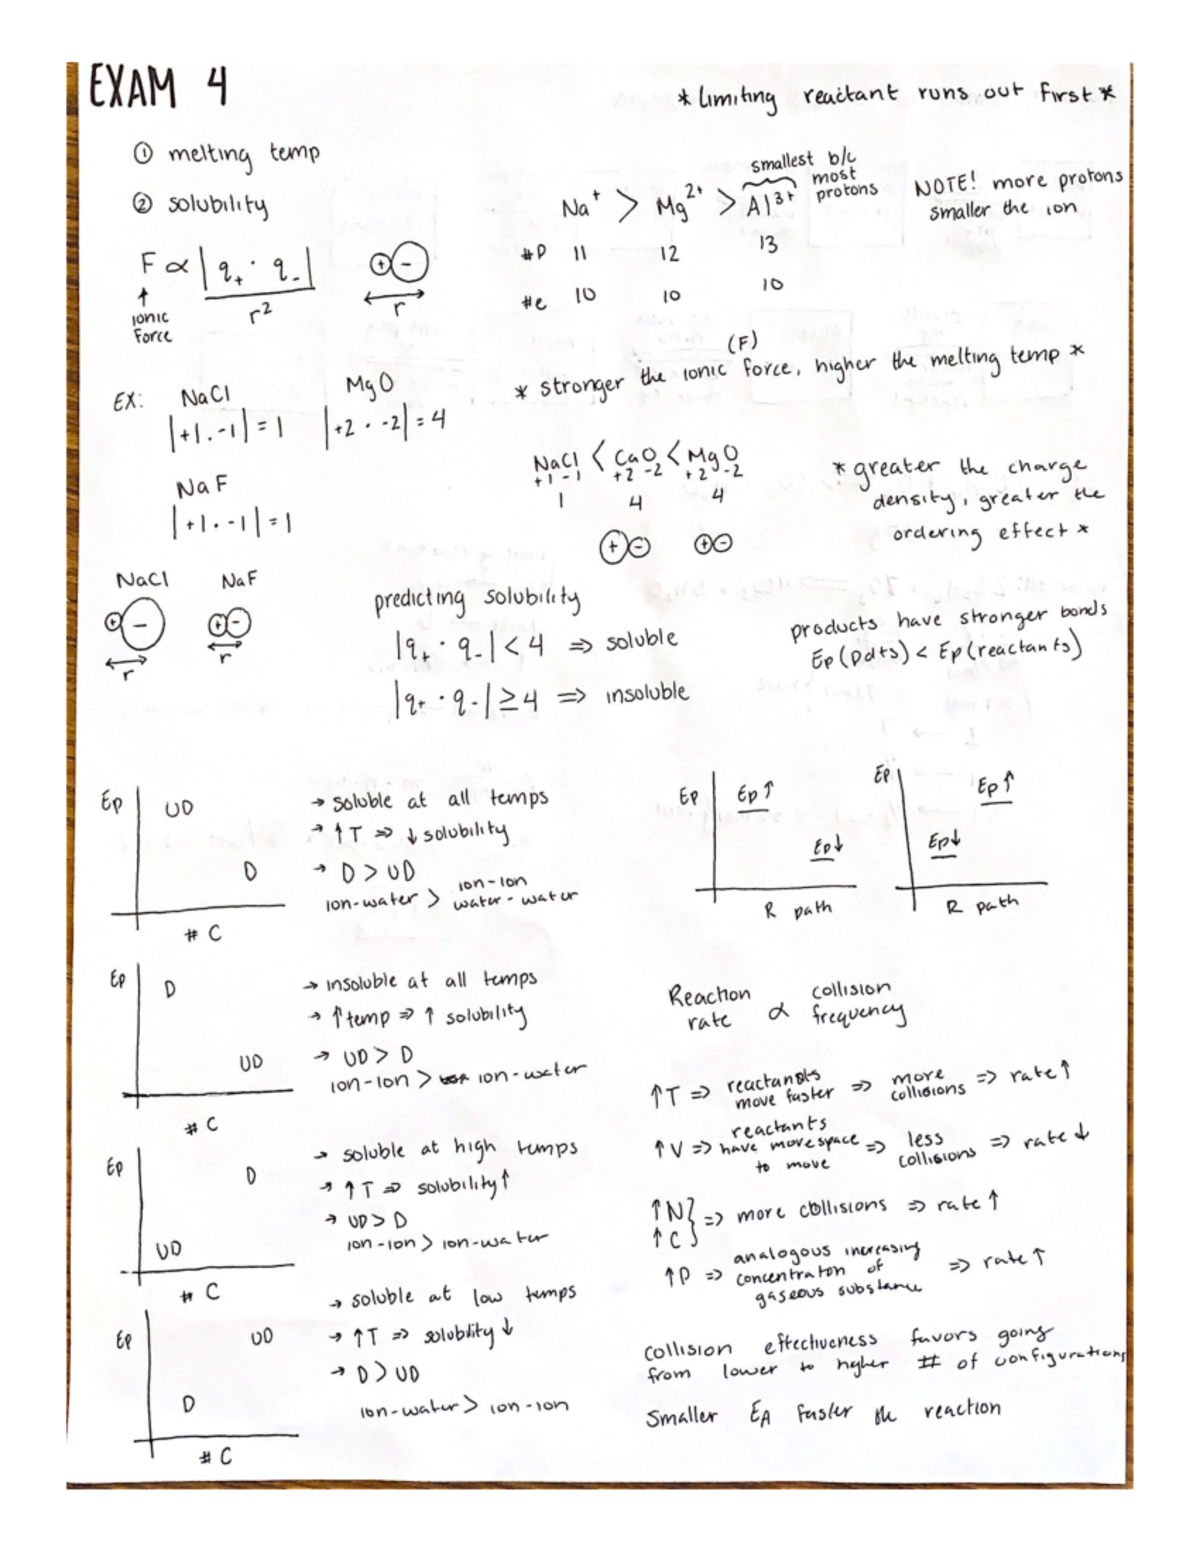 EXAM 4
* Limiting reactant runs out first *
① melting temp
② solubility
F ∝ |q₊ · q₋| / r²
↑
ionic
Force
+ -
r
smallest b/c
most
protons
Na⁺ > Mg²⁺ > Al³⁺
#P 11 12 13
#e 10 10 10
NOTE! more protons
smaller the ion
(F)
* stronger the ionic force, higher the melting temp *
EX: NaCl MgO
|+1 · -1| = 1 |+2 · -2| = 4
NaF
|+1 · -1| = 1
NaCl < CaO < MgO
+1 -1 +2 -2 +2 -2
1 4 4
+ - + -
* greater the charge
density, greater the
ordering effect *
NaCl NaF
+ - + -
r r
predicting solubility
|q₊ · q₋| < 4 ⇒ soluble
|q₊ · q₋| ≥ 4 ⇒ insoluble
products have stronger bonds
Ep (pdts) < Ep (reactants)
Ep UD
D
# C
→ soluble at all temps
→ ↑T ⇒ ↓ solubility
→ D > UD
ion-water > ion-ion
water-water
Ep Ep↑
Ep↓
R path
Ep Ep↑
Ep↓
R path
Ep D
UD
# C
→ insoluble at all temps
→ ↑temp ⇒ ↑ solubility
→ UD > D
ion-ion > ion-water
Reaction
rate ∝ collision
frequency
↑T ⇒ reactants
move faster ⇒ more
collisions ⇒ rate↑
↑V ⇒ reactants
have more space
to move ⇒ less
collisions ⇒ rate ↓
Ep D
UD
# C
→ soluble at high temps
→ ↑T ⇒ solubility↑
→ UD > D
ion-ion > ion-water
↑N
↑C } ⇒ more collisions ⇒ rate ↑
↑P ⇒ analogous increasing
concentraton of
gaseous substance ⇒ rate ↑
Ep UD
D
# C
→ soluble at low temps
→ ↑T ⇒ solubility ↓
→ D > UD
ion-water > ion-ion
collision effectiveness favors going
from lower to higher # of configurations
Smaller EA faster the reaction